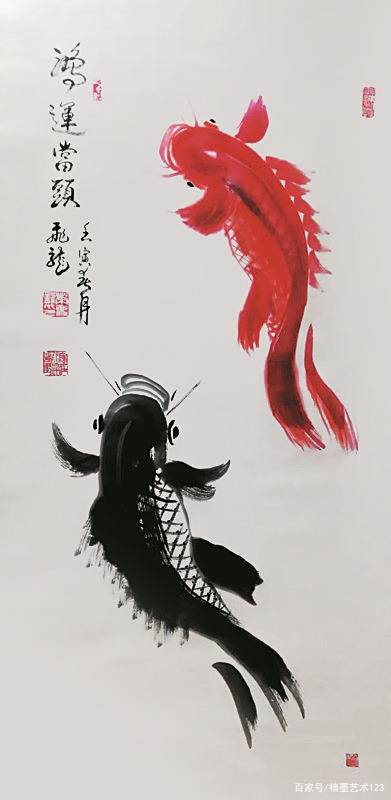 鴻運當頭
壬寅春月
飛龍
百家号/桔墨艺术123